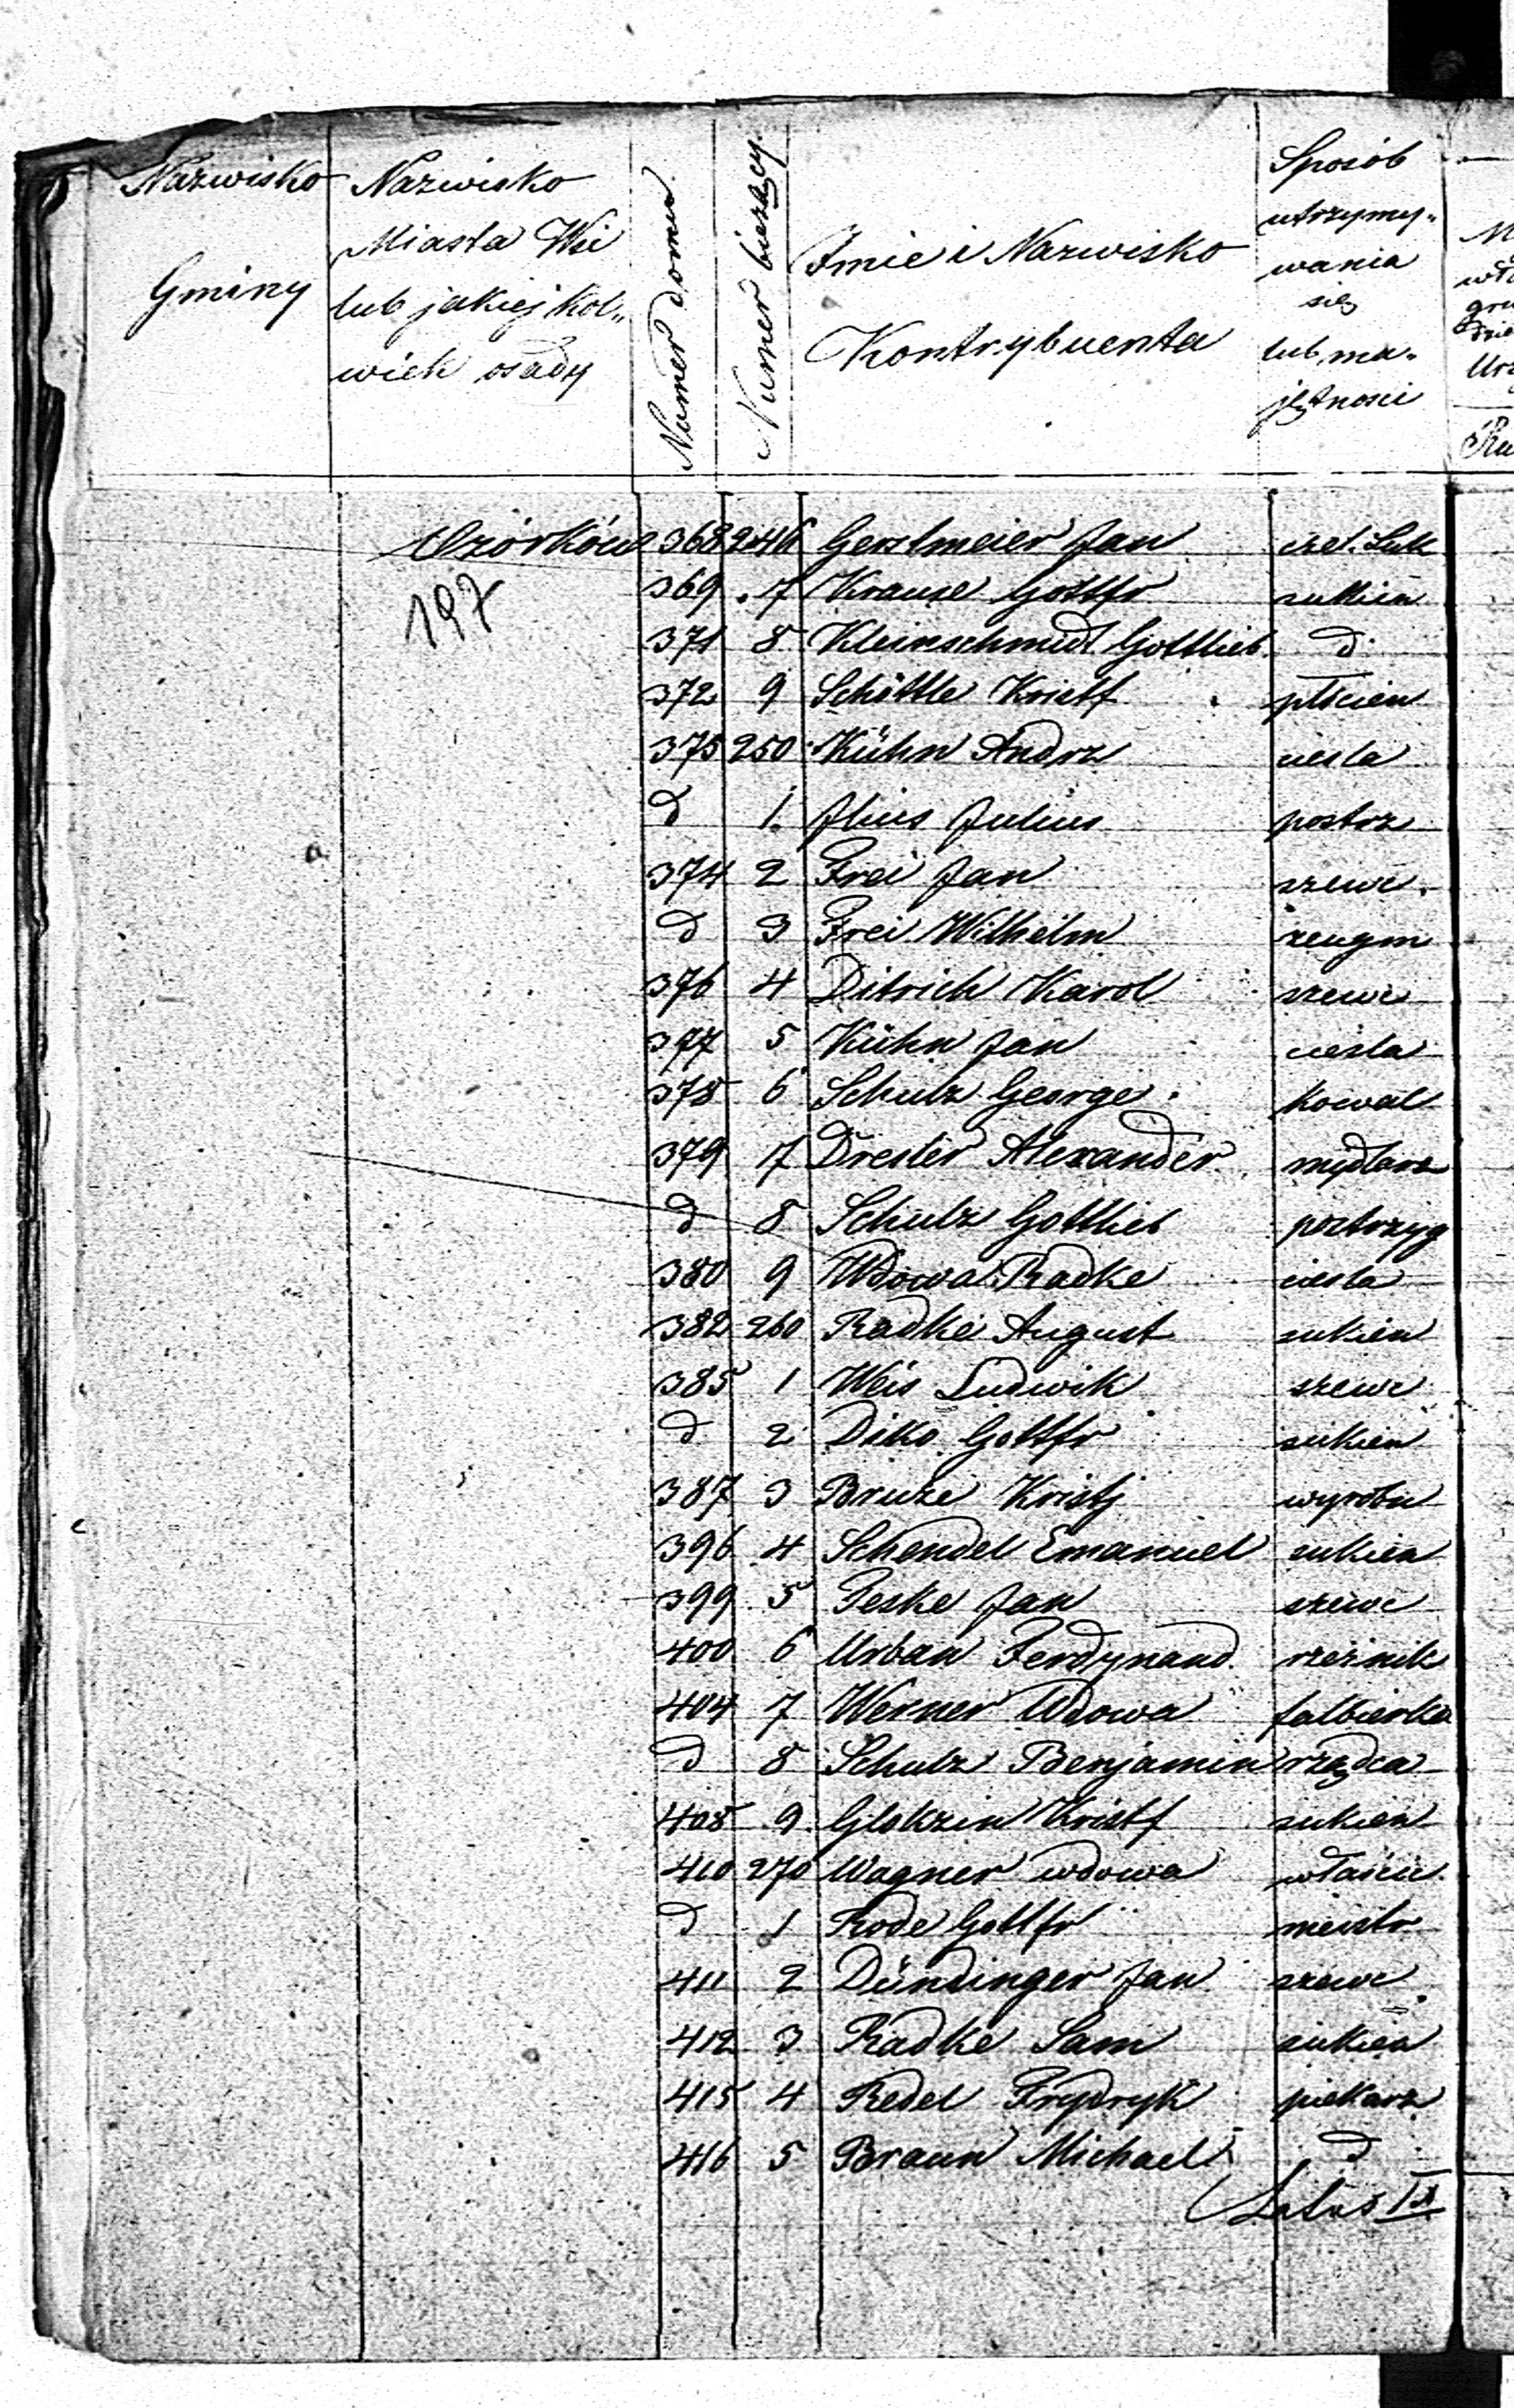 Nazwisko Gminy
Nazwisko Miasta Wsi lub jakiej kol„ wiek osady
Numer domu
Numer bieżący
Imie i Nazwisko Kontrybuenta
Sposób utrzymy„ wania się lub ma„ jętności
Ozórków 368 246 Gerstmeier Jan czel. Suk
197
369 . 7 Krause Gottfr sukien
371 8 Kleinschmidt Gottlieb d
372 9 Schöttle Kristf płócien
373 250 Kühn Andrz ciesla
d 1. Julius postrz
374 2 Frei Jan szewc.
d 3 Frei Wilhelm zeugm
376 4 Ditrich Karol szewc
377 5 Kühn Jan ciesla
378 6 Schulz George kowal
379 7 Drester Alexander mydlarz
d 8 Schulz Gottlieb postrzyg
380 9 Wdowa Radke ciesla
382 260 Radke August sukien
385 1 Weis Ludwik szewc
d 2 Diko Gottfr sukien
387 3 Bruze Kristj wyrobn
396 4 Schendel Emanuel sukien
399 5 Peske Jan szewc
400 6 Urban Ferdynand rzeżnik
404 7 Werner Wdowa falbierka
d 8 Schulz Benjamin rządca
408 9 Glokzin Kristf sukien
410 270 Wagner wdowa właścic.
d 1 Rode Gottfr meistr
411 2 Dündinger Jan szewc
412 3 Radke Sam sukien
415 4 Redel Frydryk piekarz
416 5 Braun Michael d
Latus IX